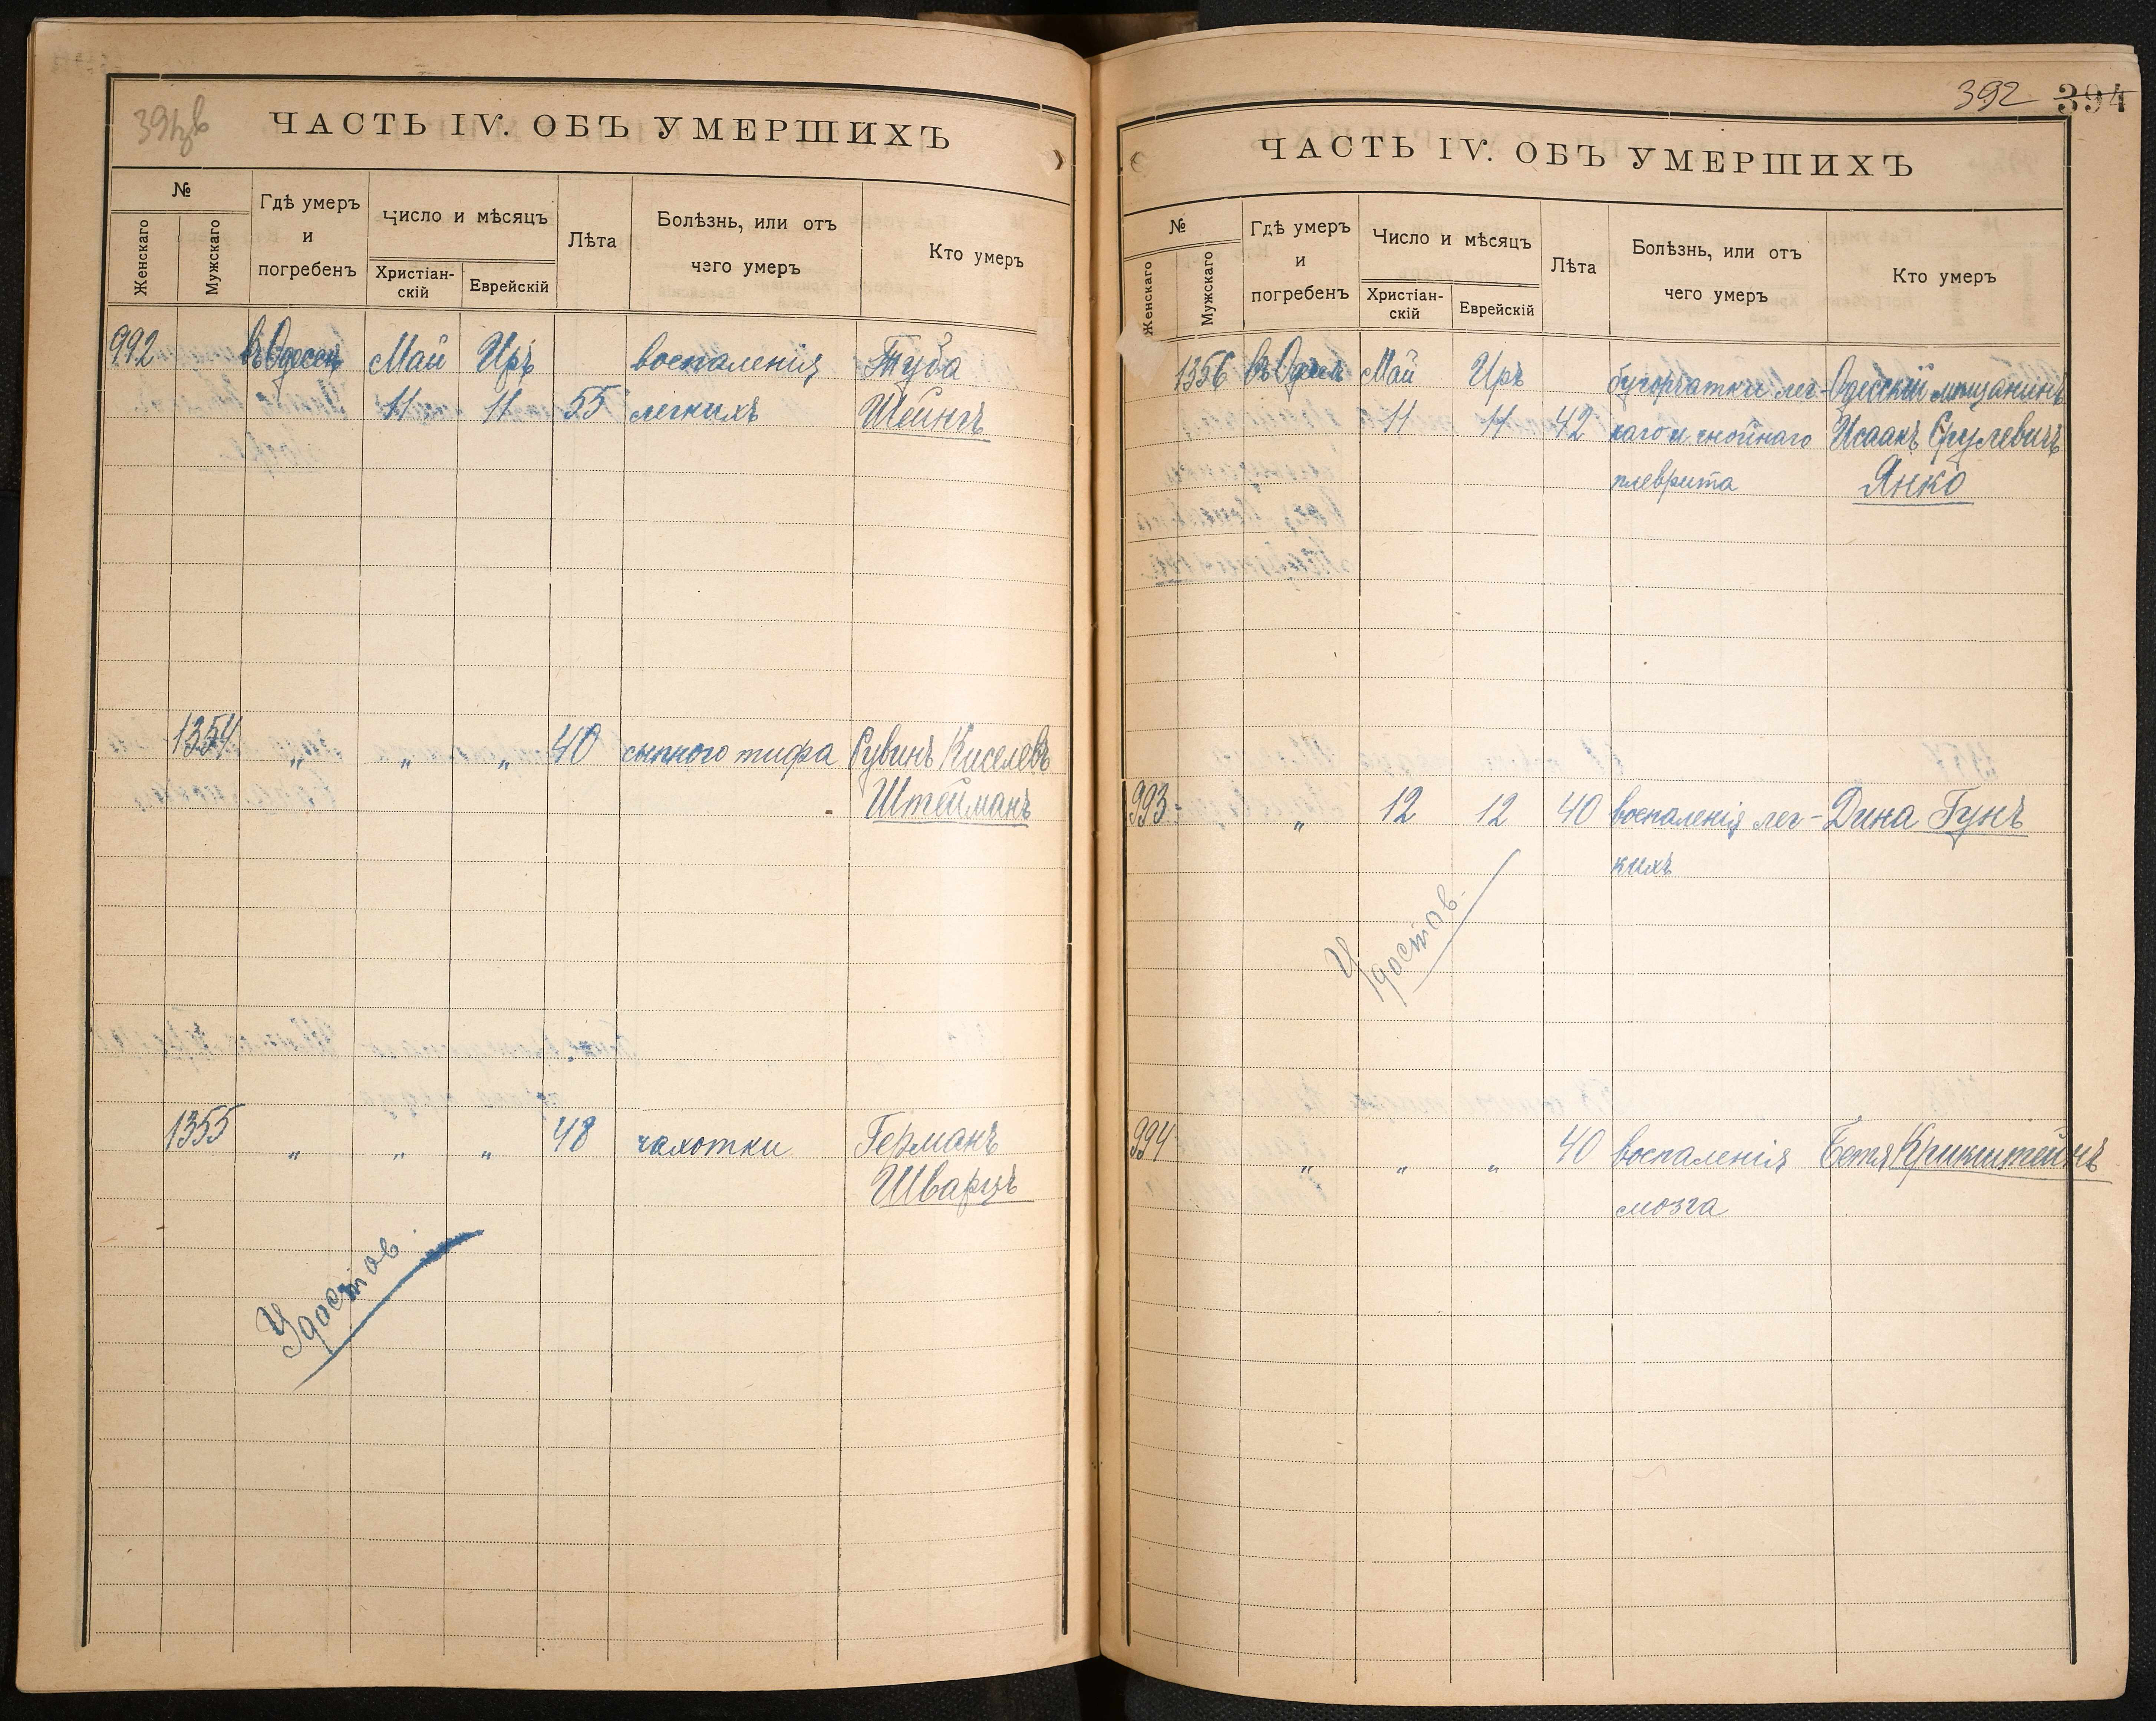 ЧАСТЬ IV. ОБЪ УМЕРШИХЪ
№
Женскаго
Мужскаго
Гдѣ умеръ
и
погребенъ
Число и мѣсяцъ
Христіан-
скій
Еврейскій
Лѣта
Болѣзнь, или отъ
чего умеръ
Кто умеръ
992 въ Одессѣ Май Иръ воспаленія Туба
11 11 55 легкихъ Шейнъ
1354 „ „ „ 40 сыпного тифа Рувинъ Киселевъ
Штейманъ
1355 „ „ „ 48 чахотки Германъ
Шварцъ
Удостов.
392 394
ЧАСТЬ IV. ОБЪ УМЕРШИХЪ
№
Женскаго
Мужскаго
Гдѣ умеръ
и
погребенъ
Число и мѣсяцъ
Христіан-
скій
Еврейскій
Лѣта
Болѣзнь, или отъ
чего умеръ
Кто умеръ
1356 въ Одессѣ Май Иръ бугорчатки лег- Одесскій мѣщанинъ
11 11 42 каго и гнойнаго Исаакъ Срулевичъ
плеврита Янко
993 „ 12 12 40 воспаленія лег- Дина Гунъ
кихъ
Удостов.
994 „ „ „ 40 воспаленія Бетя
мозга